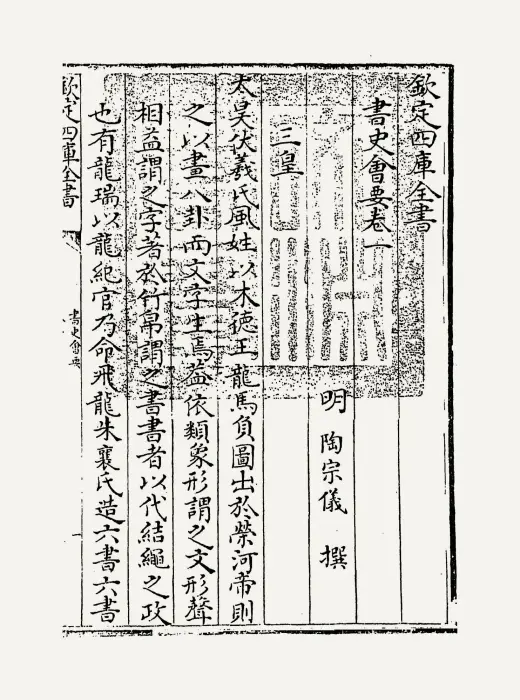 欽定四庫全書
書史會要卷一
明 陶宗儀 撰
三皇
太昊伏羲氏風姓以木德王龍馬負圖出於榮河帝則
之以畫八卦而文字生焉蓋依類象形謂之文形聲
相益謂之字著於竹帛謂之書書者以代結繩之政
也有龍瑞以龍紀官乃命飛龍朱襄氏造六書六書
欽定四庫全書
書史會要
一